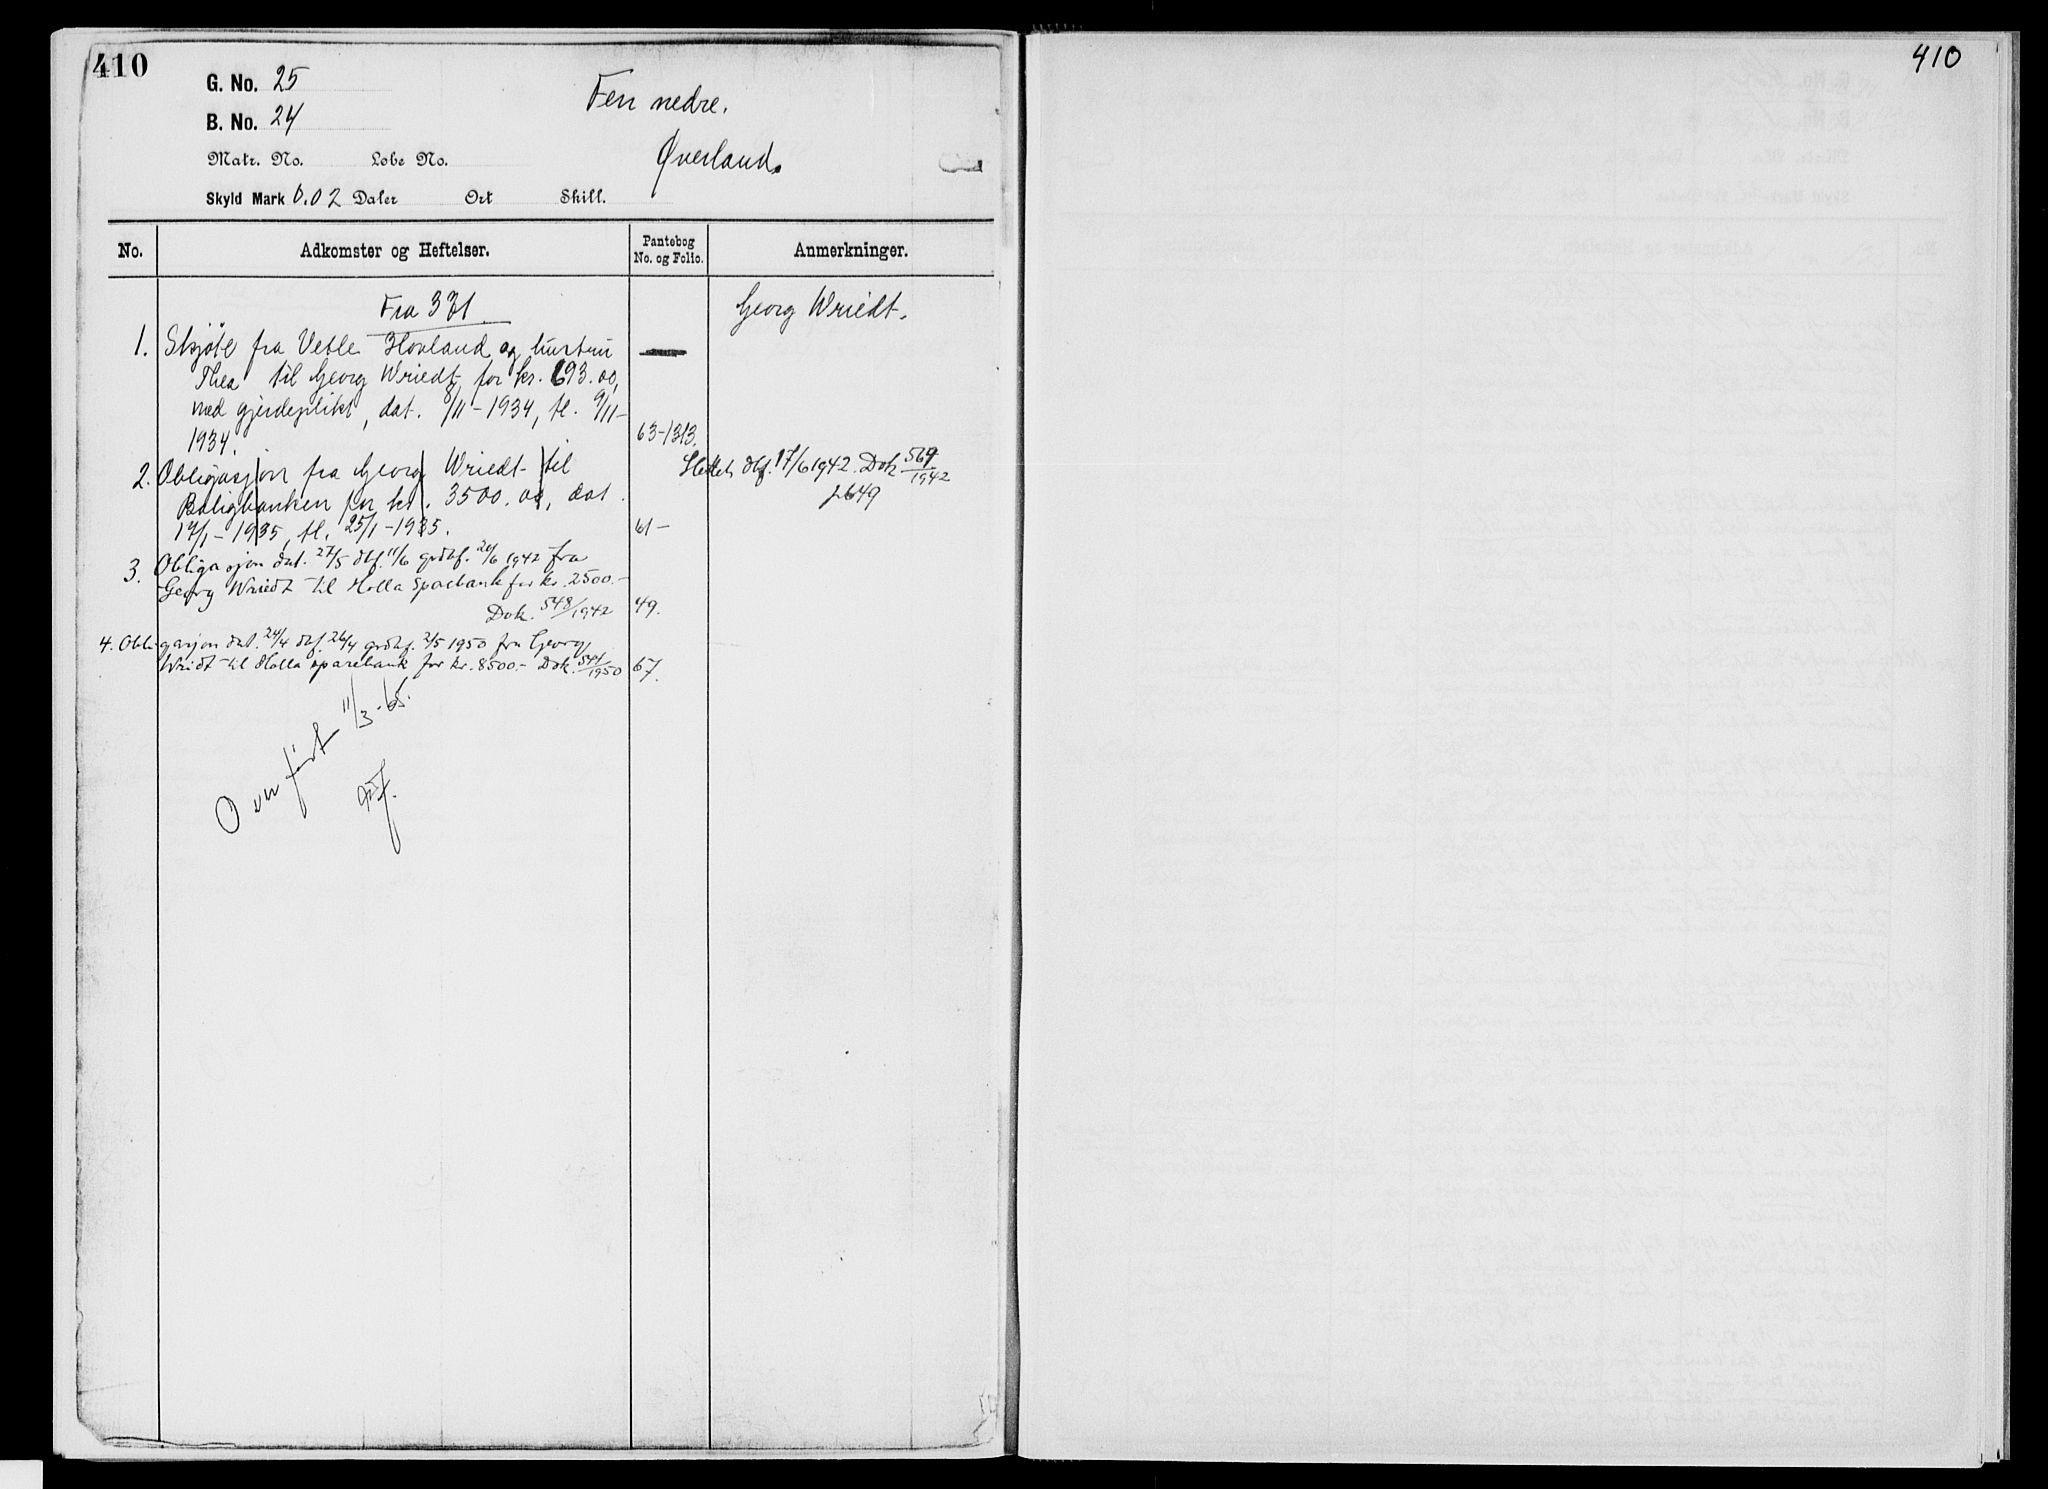 410
G. No. 25
B. No. 24
Matr. No. Løbe No.
Skyld Mark 0.02 Daler Ort Skill.
Fen nedre.
Øverland.
No. Adkomster og Heftelser. Pantebog No. og Folio. Anmerkninger.
Fra 331.
Georg Wriedt.
1. Skjøte fra Vetle Hovland og hustru
Thea til Georg Wriedt for kr. 693.00,
med gjerdeplikt, dat. 8/11-1934, tl. 9/11-
1934. 63-1313.
2. Obligasjon fra Georg Wriedt til
Boligbanken for kr. 3500.00, dat.
17/1-1935, tl. 25/1-1935. 61-
Slettet dbf. 17/6 1942. Dok 569/1942
3. Obligasjon dat. 27/5 dbf. 11/6 grdbf. 20/6 1942 fra
Georg Wriedt til Holla Sparebank for kr. 2500.-
Dok. 548/1942 49.
4. Obligasjon dat. 24/4 dbf. 26/4 grdbf. 2/5 1950 fra Georg
Wridt til Holla sparebank for kr. 8500.- Dok. 541/1950 67.
Overført 11/3-65.
410